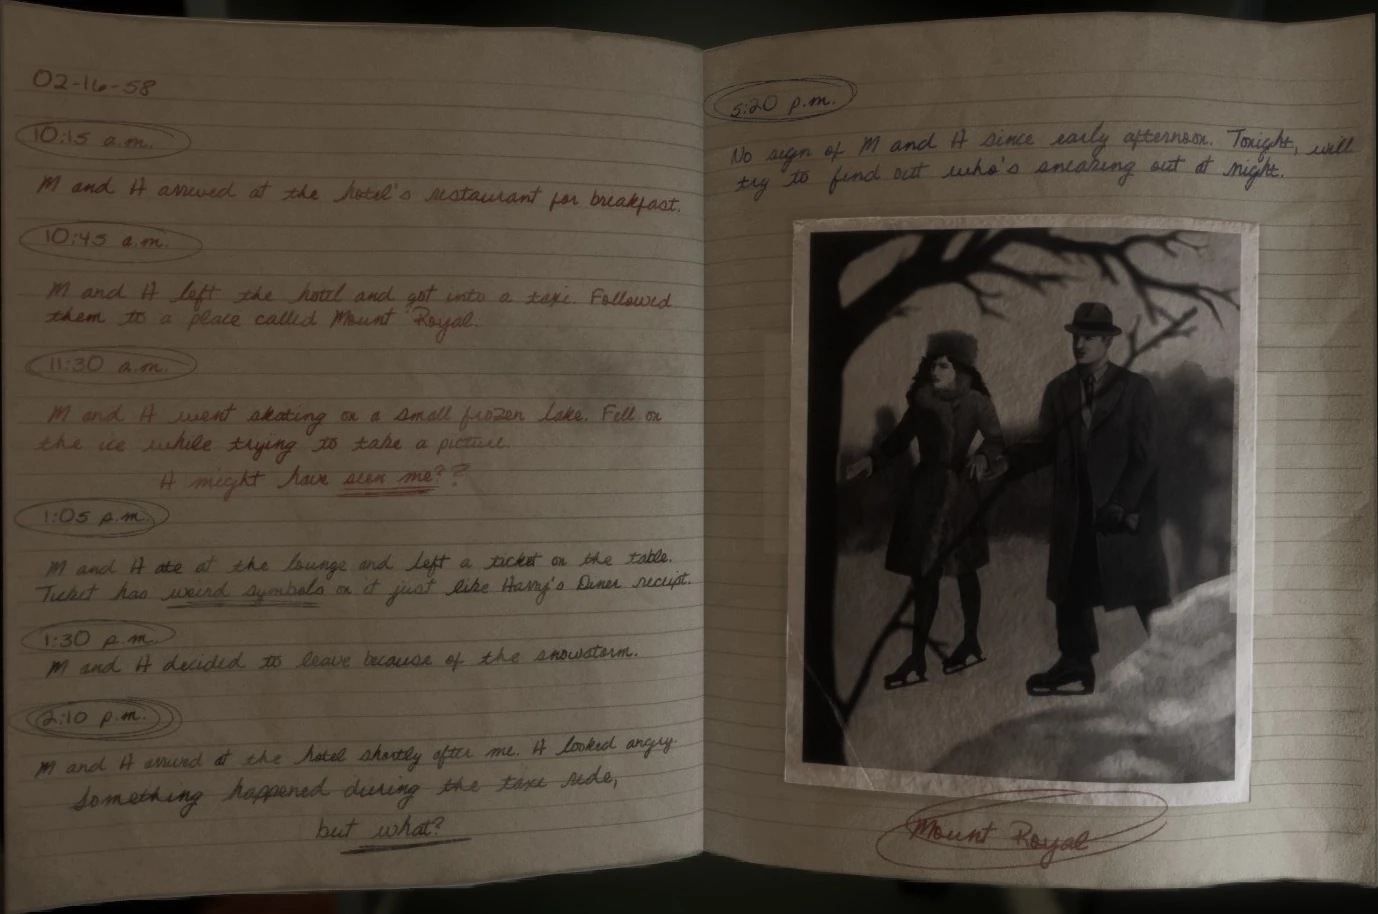 02-16-58
10:15 a.m.
M and A arrived at the hotel's restaurant for breakfast.
10:45 a.m.
M and A left the hotel and got into a taxi. Followed
them to a place called Mount Royal.
11:30 a.m.
M and A went skating on a small frozen lake. Fell on
the ice while trying to take a picture.
A might have seen me??
1:05 p.m.
M and A ate at the lounge and left a ticket on the table.
Ticket has weird symbols on it just like Harry's Diner receipt.
1:30 p.m.
M and A decided to leave because of the snowstorm.
2:10 p.m.
M and A arrived at the hotel shortly after me. A looked angry.
Something happened during the taxi ride,
but what?
5:20 p.m.
No sign of M and A since early afternoon. Tonight, will
try to find out who's sneaking out at night.
Mount Royal